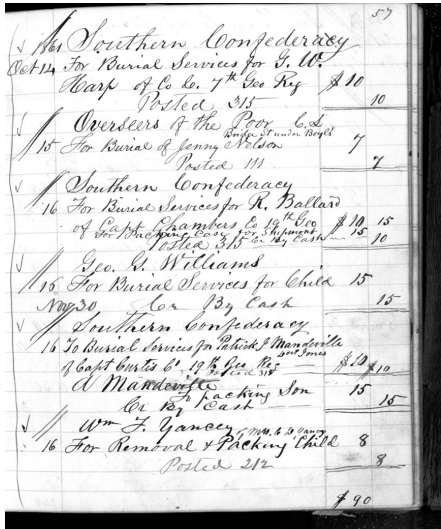 57
1861 Southern Confederacy
Oct 14 For Burial Services for G. W.
Harp of Co C. 7th Geo Reg $10
Posted 315 10
Overseers of the Poor C.S.
Bridge St under Boyls
15 For Burial of Jenny Nelson 7
Posted 111 7
Southern Confederacy
16 For Burial Services for R. Ballard
of Capt Chambers Co 19th Geo $10 15
For Packing Case for Shipment 15
Posted 315 Cr By Cash 10
Geo. G. Williams
16 For Burial Services for Child 15
Nov 30 Cr By Cash 15
Southern Confederacy
16 To Burial Services for Patrick J Mandeville
of Capt Curtis Co 19th Geo Reg $10
Posted 315 $10
A Mandeville
To packing Son 15
Cr By Cash 15
Wm F. Yancey
16 For Removal & Packing Child 8
Posted 212 8
$90